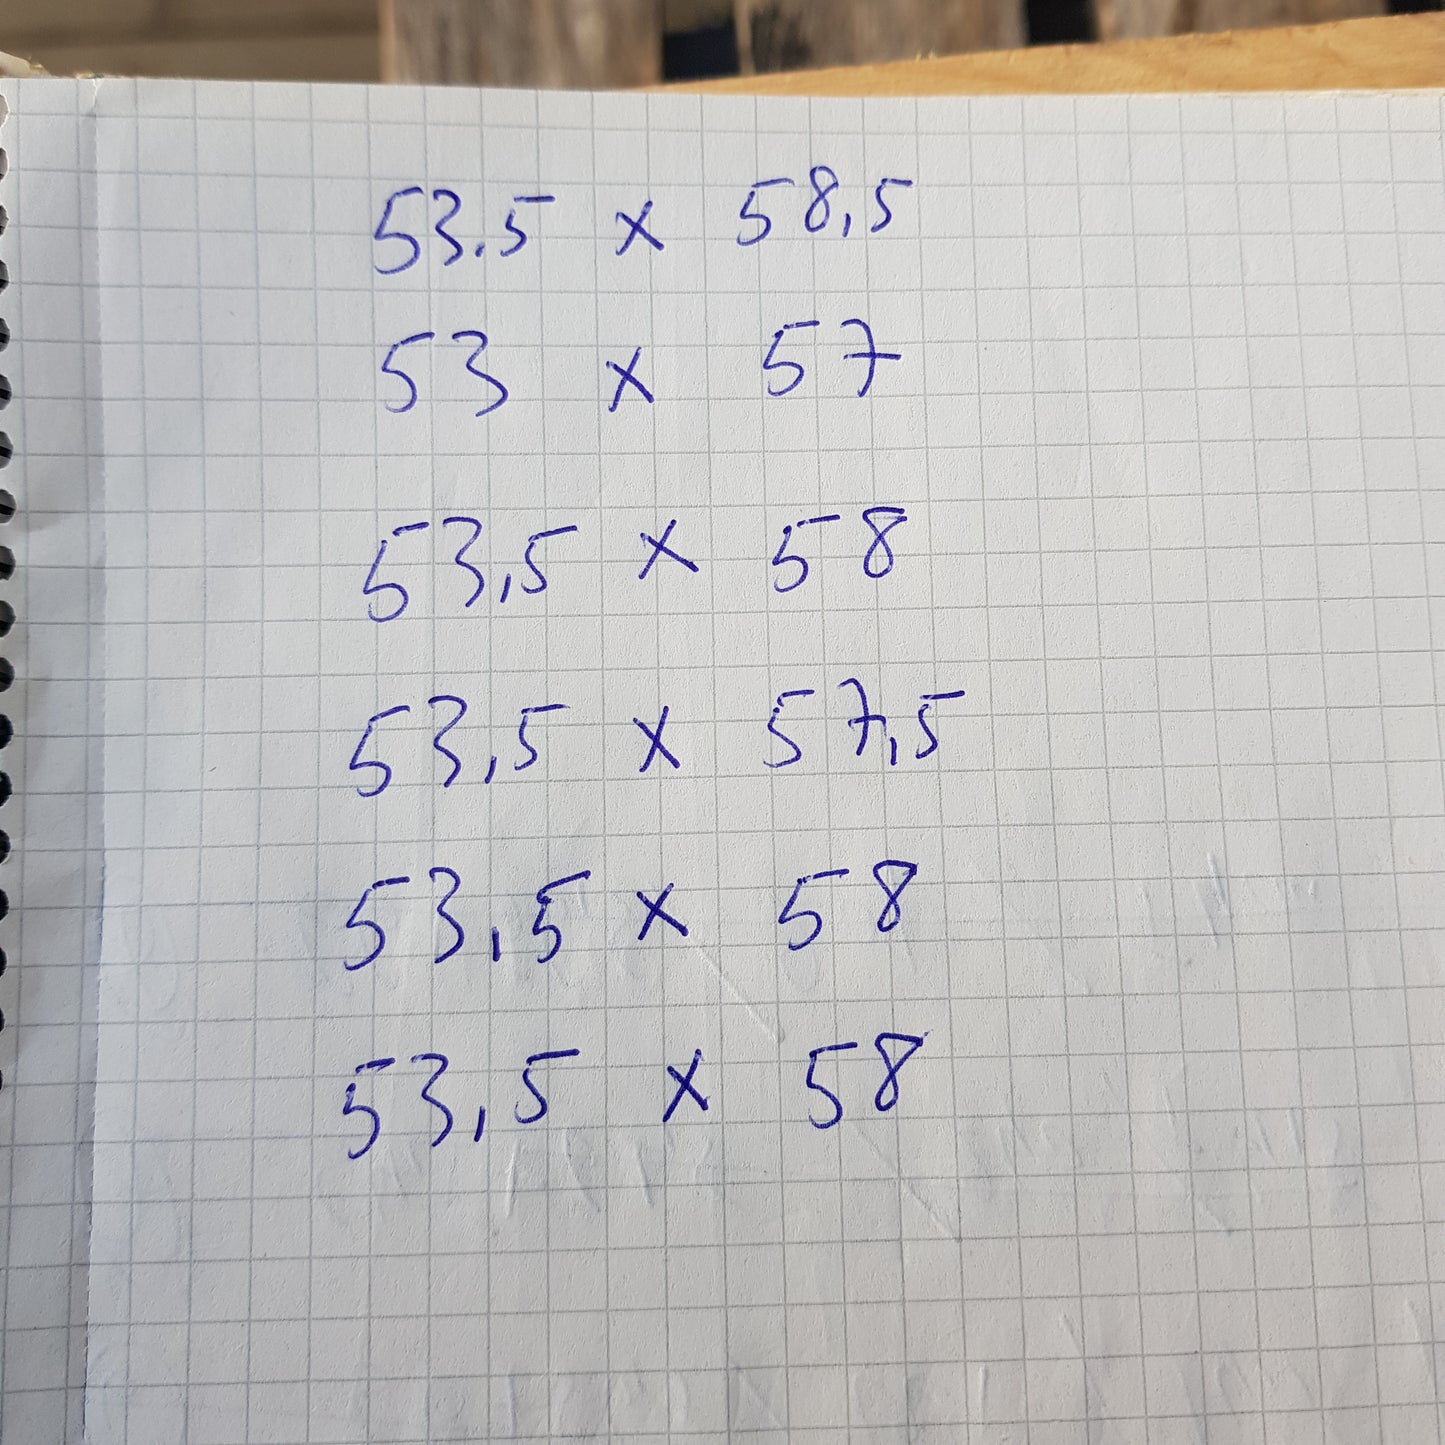 53.5 x 58,5
53 x 57
53,5 x 58
53,5 x 57,5
53,5 x 58
53,5 x 58